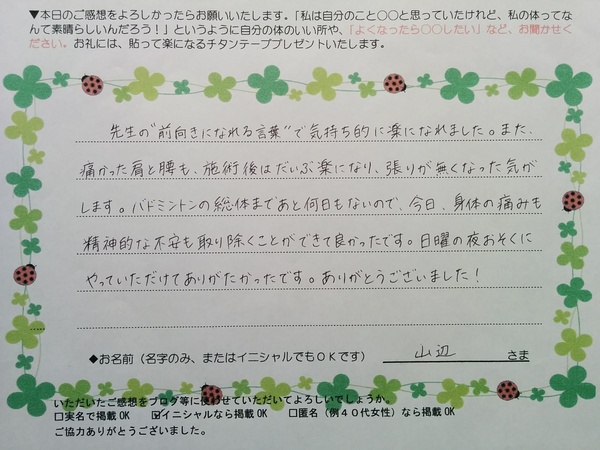 ▼本日のご感想をよろしかったらお願いいたします。「私は自分のこと○○と思っていたけれど、私の体ってな
んて素晴らしいんだろう！」というように自分の体のいい所や、「よくなったら○○したい」など、お聞かせく
ださい。お礼には、貼って楽になるチタンテーププレゼントいたします。
先生の"前向きになれる言葉"で気持ち的に楽になれました。また、
痛かった肩と腰も、施術後はだいぶ楽になり、張りが無くなった気が
します。バドミントンの総体まであと何日もないので、今日、身体の痛みも
精神的な不安も取り除くことができて良かったです。日曜の夜おそくに
やっていただけてありがたかったです。ありがとうございました！
◆お名前（名字のみ、またはイニシャルでもＯＫです） 山辺 さま
いただいたご感想をブログ等に使わせていただいてよろしいでしょうか。
□実名で掲載OK ☑イニシャルなら掲載OK □匿名（例４０代女性）なら掲載OK
ご協力ありがとうございました。